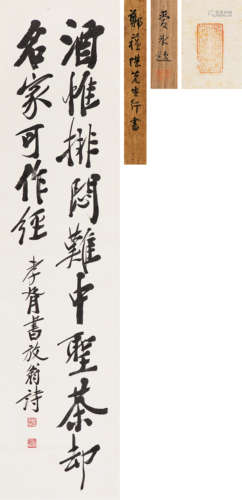 酒惟排悶難中聖茶却
名家可作經
孝胥書放翁詩
鄭蘓堪先生行書